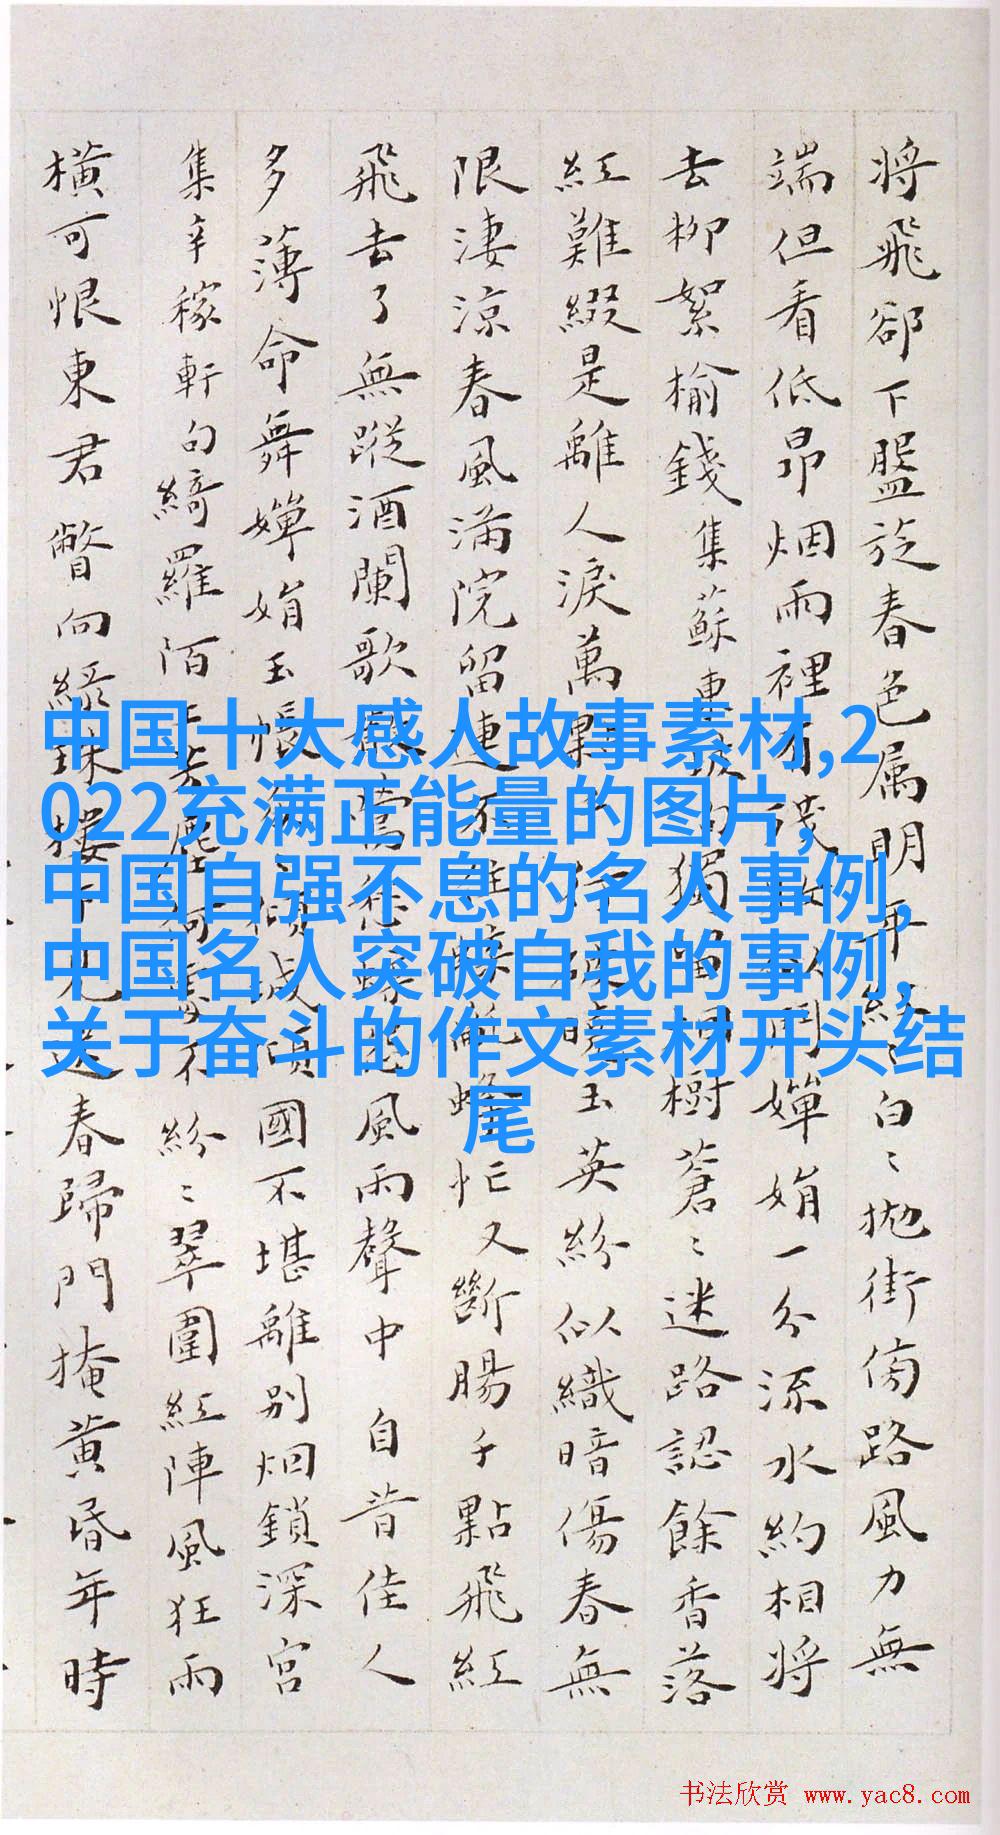 將飛郤下盤旋春色属明年紅〻白〻拋街傍路風力無
端但看低昂烟雨裡嬋娟一分流水約相將
去柳絮榆錢集蘇東坡句獨留烟樹蒼〻迷路認餘香落
紅難綴是離人淚萬點玉英紛似織暗傷春無
限淒涼春風滿院留連蜂忙又斷腸千點飛紅
飛去了無蹤酒闌歌風雨聲中 自昔佳人
多薄命舞嬋娟玉帳傾城傾國不堪離別烟鎖深宮
集辛稼軒句綺羅陌上芳塵何事不紛〻翠圍紅陣風狂雨
橫可恨東君瞥向綠珠樓下送春歸門掩黃昏年時
中国十大感人故事素材,2
022充满正能量的图片,
中国自强不息的名人事例,
中国名人突破自我的事例,
关于奋斗的作文素材开头结
尾
书法欣赏 www.yac8.com